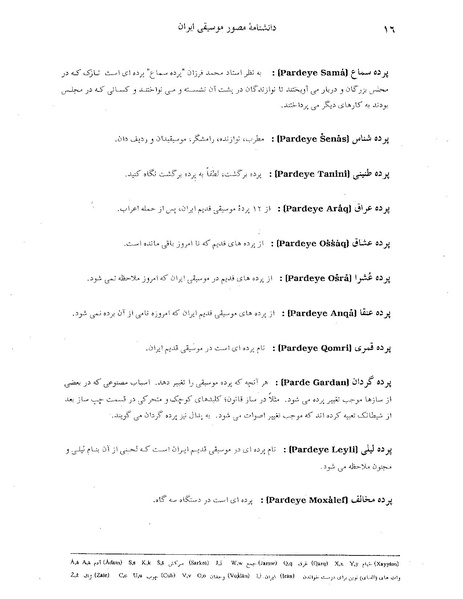 ۱۶ دانشنامهٔ مصور موسیقی ایران
پرده سماع (Pardeye Samâ) : به نظر استاد محمد فرزان "پرده سماع" پرده ای است نازک که در
مجلس بزرگان و دربار می آویختند تا نوازندگان در پشت آن نشسته و می نواختند و کسانی که در مجلس
بودند به کارهای دیگر می پرداختند.
پرده شناس (Pardeye Šenâs) : مطرب، نوازنده، رامشگر، موسیقیدان و ردیف دان.
پرده طنینی (Pardeye Tanini) : پرده برگشت، لطفاً به پرده برگشت نگاه کنید.
پرده عراق (Pardeye Arâq) : از ۱۲ پردهٔ موسیقی قدیم ایران، پس از حمله اعراب.
پرده عشاق (Pardeye Oššâq) : از پرده های قدیم که تا امروز باقی مانده است.
پرده عُشرا (Pardeye Ošrâ) : از پرده های قدیم در موسیقی ایران که امروز ملاحظه نمی شود.
پرده عنقا (Pardeye Anqâ) : از پرده های موسیقی قدیم ایران که امروزه نامی از آن برده نمی شود.
پرده قمری (Pardeye Qomri) : نام پرده ای است در موسیقی قدیم ایران.
پرده گردان (Parde Gardan) : هر آنچه که پرده موسیقی را تغییر دهد. اسباب مصنوعی که در بعضی
از سازها موجب تغییر پرده می شود. مثلاً در ساز قانون؛ کلیدهای کوچک و متحرکی در قسمت چپ ساز بعد
از شیطانک تعبیه کرده اند که موجب تغییر اصوات می شود. به پدال نیز پرده گردان می گویند.
پرده لیلی (Pardeye Leyli) : نام پرده ای در موسیقی قدیم ایران است که لحنی از آن بنام لیلی و
مجنون ملاحظه می شود.
پرده مخالف (Pardeye Moxâlef) : پرده ای است در دستگاه سه گاه.
Â,â A,a آدم (Âdam) S,s K,k Š,š سرکش (Sarkeš) J,j W,w جمع (Jamw) Q,q غرق (Qarq) X,x Y,y خیام (Xayyâm)
Z,ž ژاله (Žâle) C,c U,u چوب (Cub) V,v O,o وجدان (Vojdân) I,i ایران (Irân) وات های (الفبای) نوین برای درست خواندن